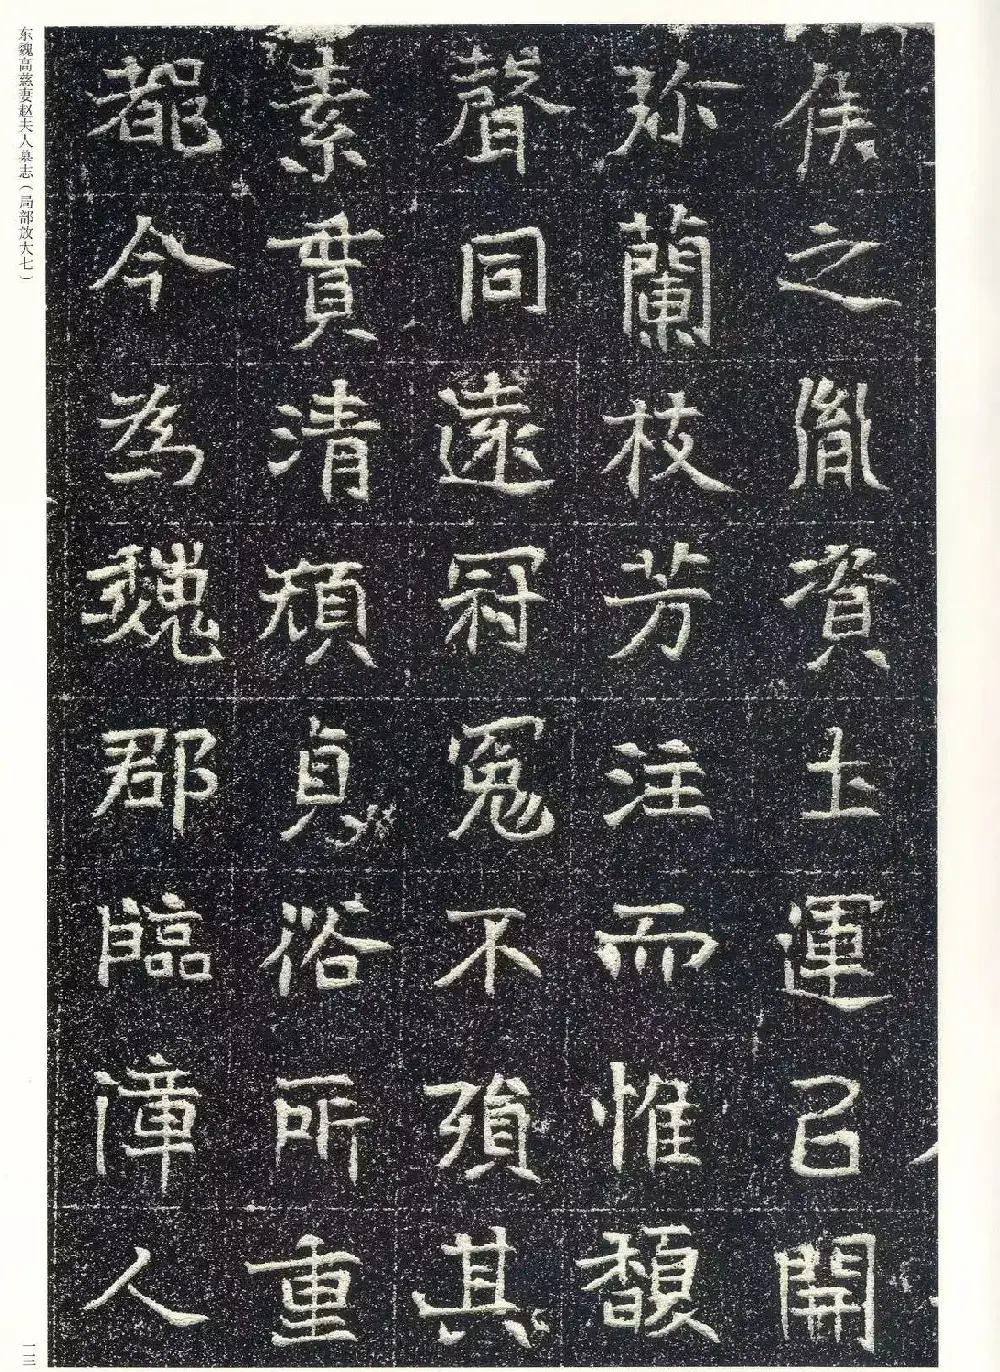 侯之胤資圡運已開
蘭枝芳注而惟馥
聲同遠冠冤不殞其
素貫清頹貞浴所重
都今為魏郡臨漳人
东魏高慈妻赵夫人墓志（局部放大七）
一一三